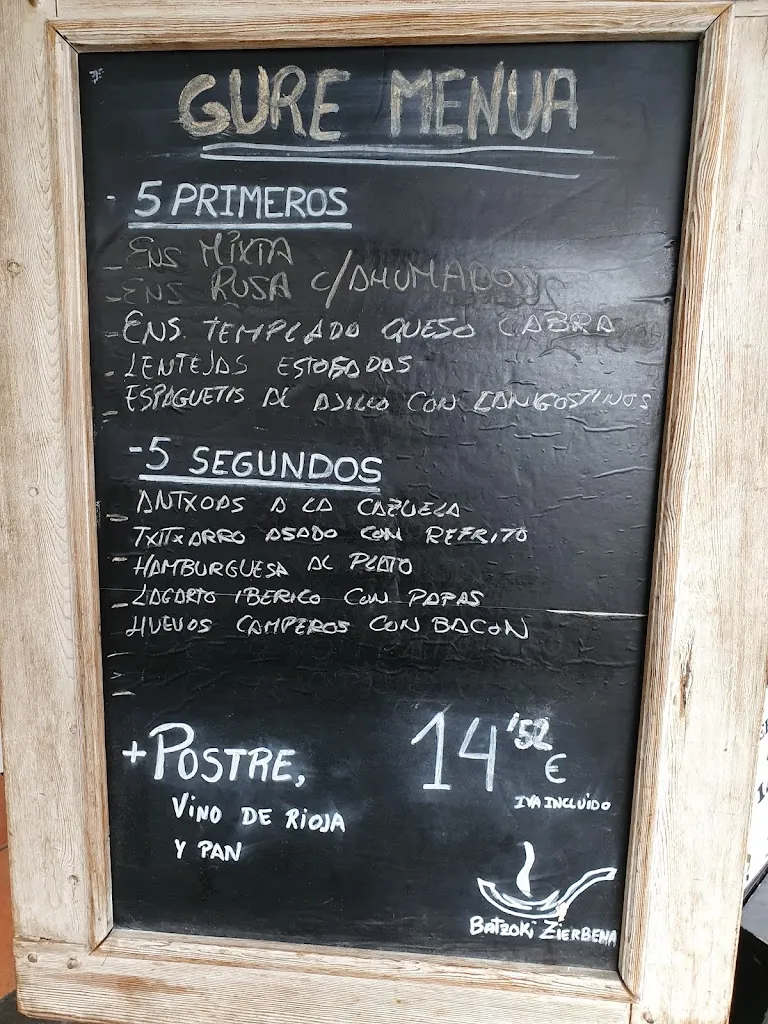 GURE MENUA
- 5 PRIMEROS
- ENS MIXTA
- ENS RUSA C/AHUMADOS
- ENS. TEMPLADO QUESO CABRA
- LENTEJAS ESTOFADAS
- ESPAGUETIS AL AJILLO CON LANGOSTINOS
- 5 SEGUNDOS
- ANTXOAS A LA CAZUELA
- TXITXARRO ASADO CON REFRITO
- HAMBURGUESA AL PLATO
- LAGARTO IBERICO CON PAPAS
- HUEVOS CAMPEROS CON BACON
+ POSTRE,
VINO DE RIOJA
Y PAN
14'52 €
IVA INCLUIDO
BATZOKI ZIERBENA